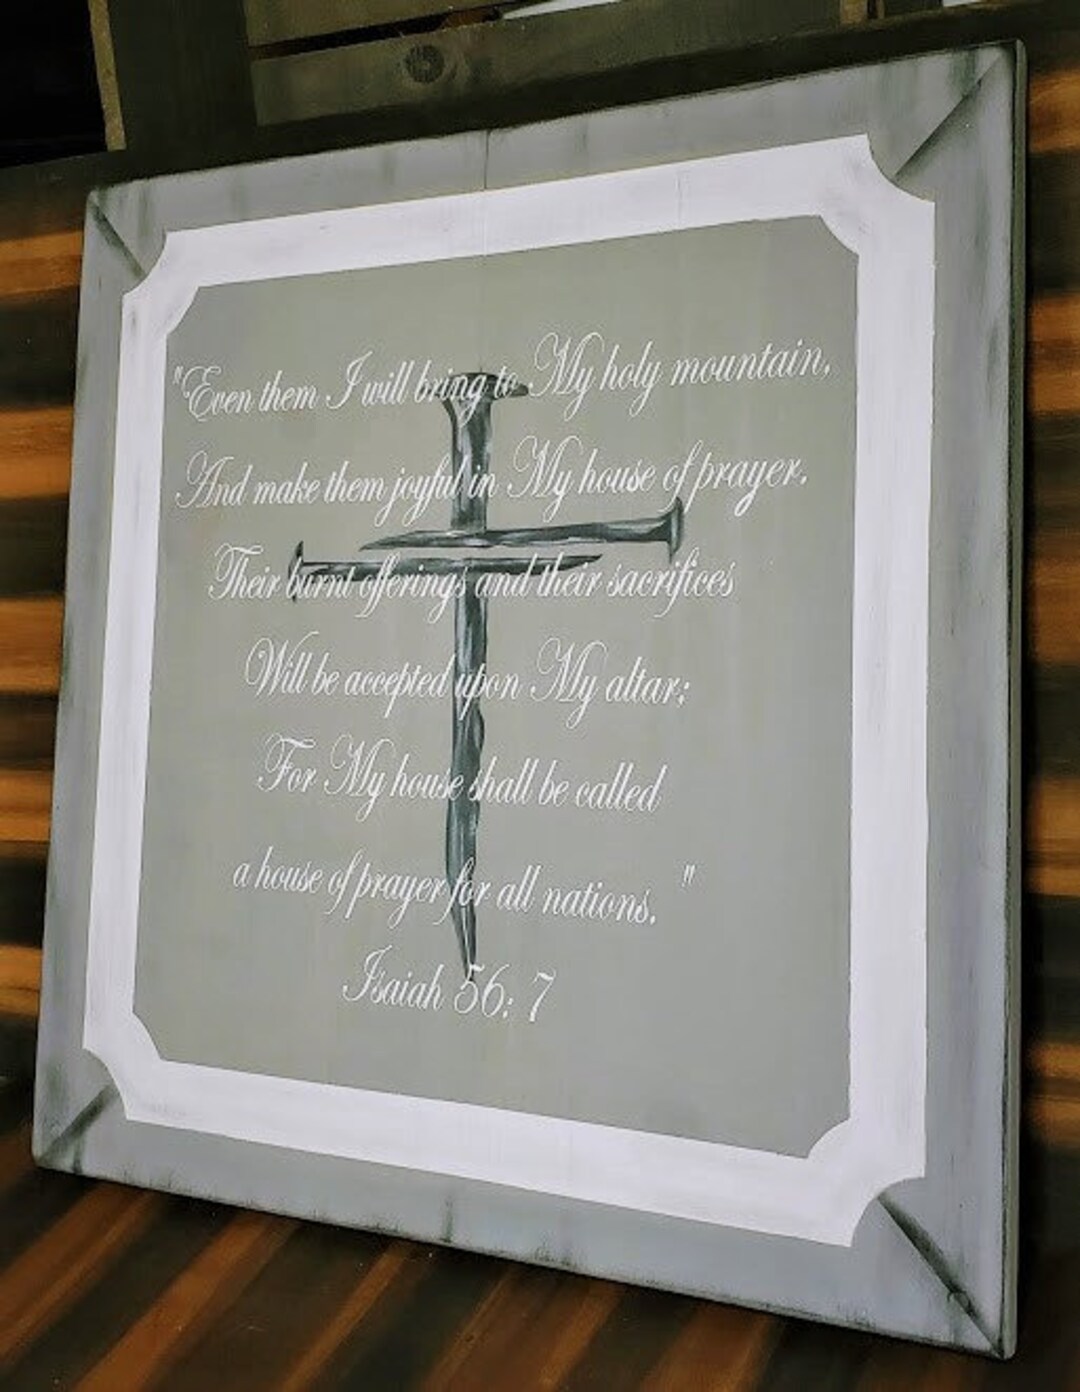 "Even them I will bring to My holy mountain,
And make them joyful in My house of prayer.
Their burnt offerings and their sacrifices
Will be accepted upon My altar;
For My house shall be called
a house of prayer for all nations. "
Isaiah 56: 7